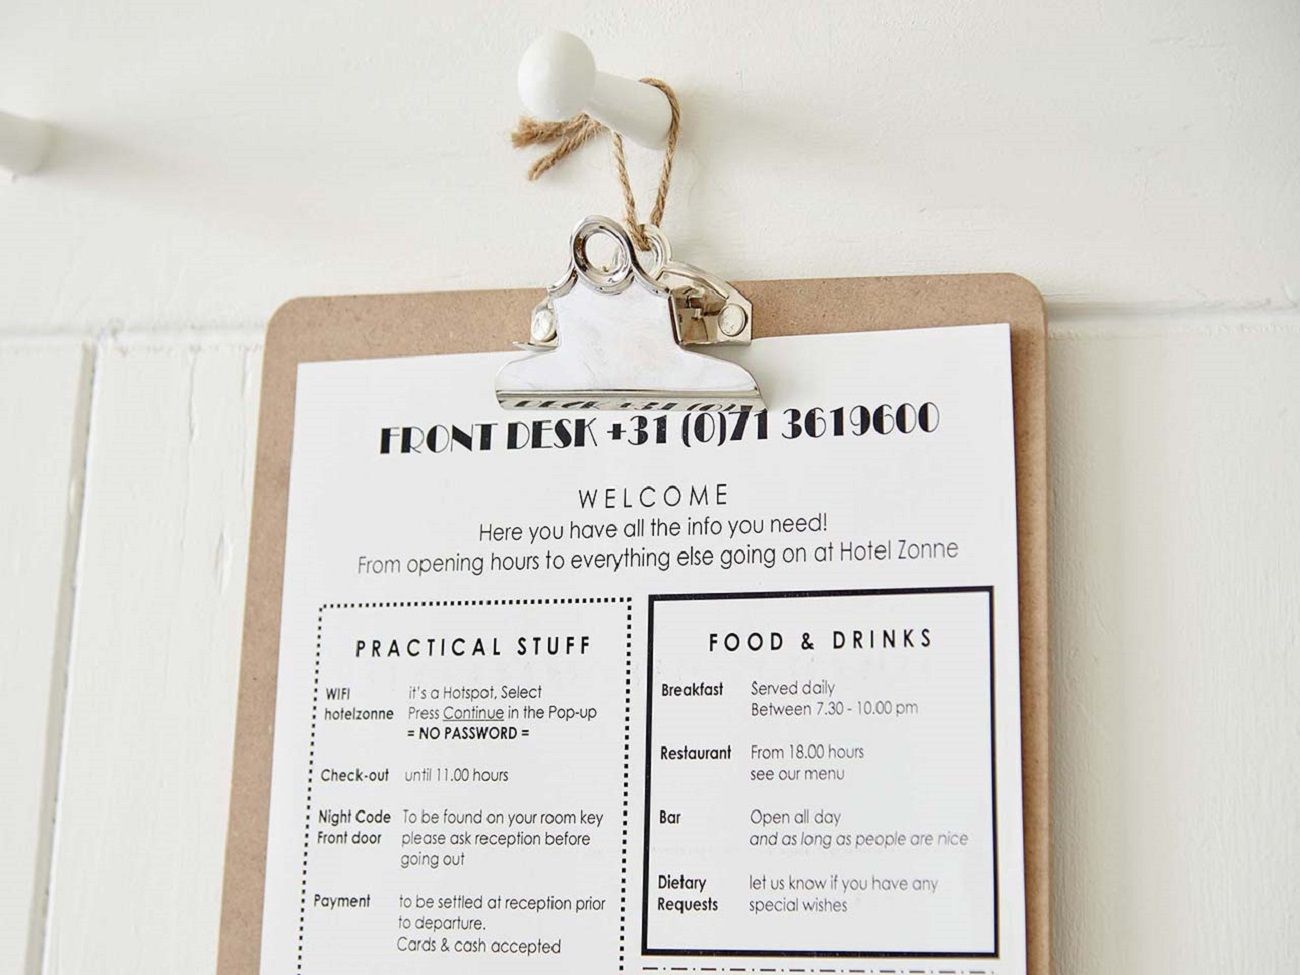 FRONT DESK +31 (0)71 3619600
WELCOME
Here you have all the info you need!
From opening hours to everything else going on at Hotel Zonne
PRACTICAL STUFF
WIFI it's a Hotspot, Select
hotelzonne Press Continue in the Pop-up
= NO PASSWORD =
Check-out until 11.00 hours
Night Code To be found on your room key
Front door please ask reception before
going out
Payment to be settled at reception prior
to departure.
Cards & cash accepted
FOOD & DRINKS
Breakfast Served daily
Between 7.30 - 10.00 pm
Restaurant From 18.00 hours
see our menu
Bar Open all day
and as long as people are nice
Dietary let us know if you have any
Requests special wishes